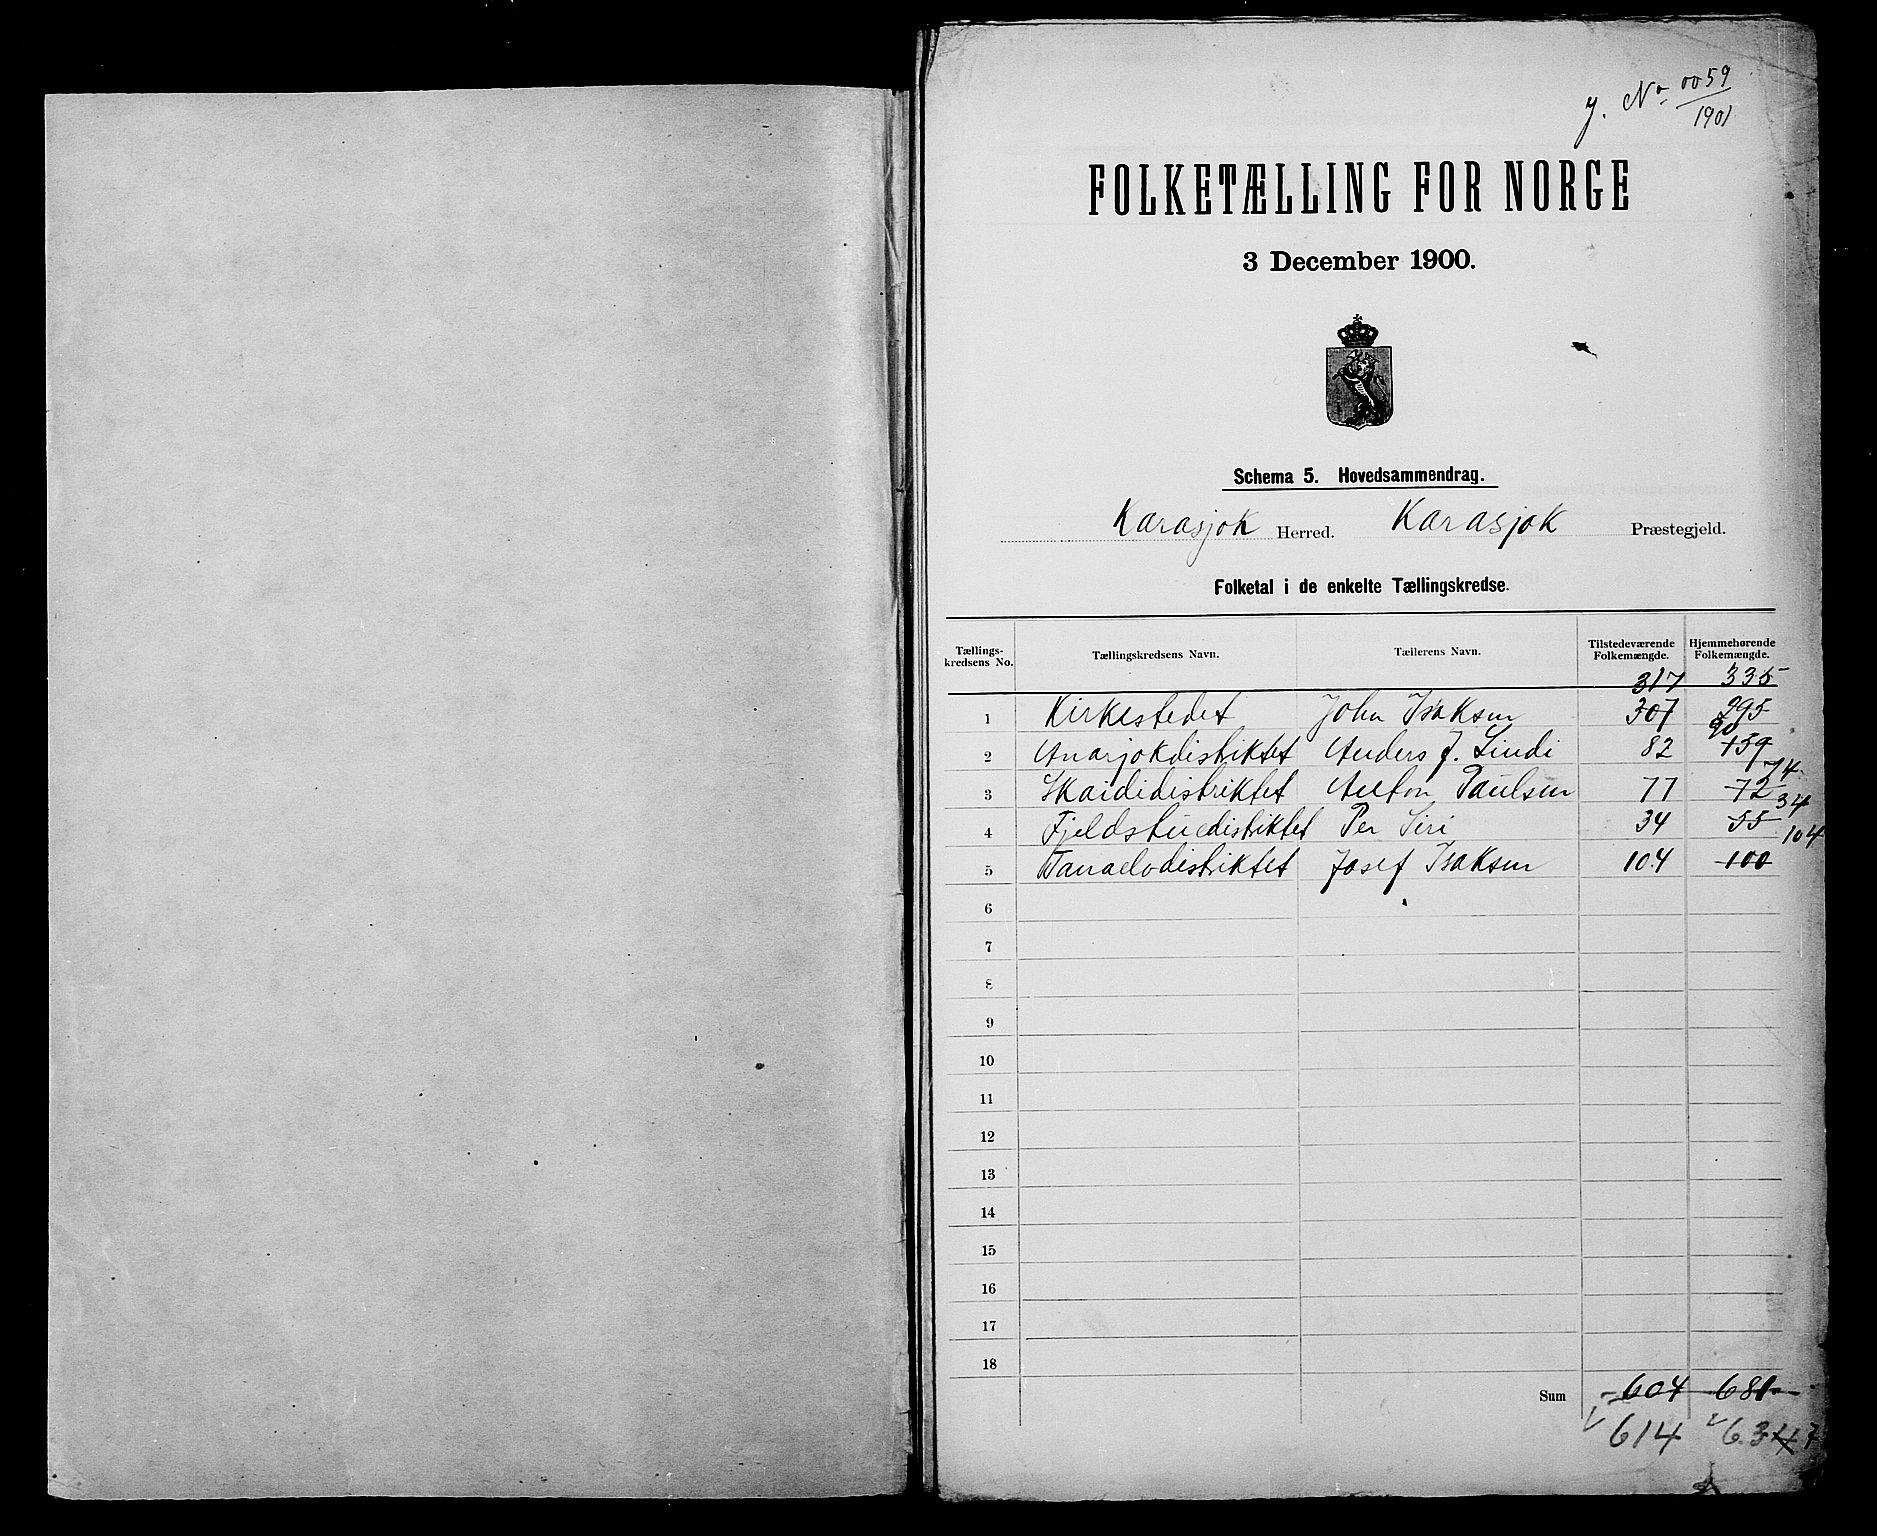 J. No 0059
1901
FOLKETÆLLING FOR NORGE
3 December 1900.
Schema 5. Hovedsammendrag.
Karasjok Herred. Karasjok Præstegjeld.
Folketal i de enkelte Tællingskredse.
Tællings-kredsens No. Tællingskredsens Navn. Tællerens Navn. Tilstedeværende Folkemængde. Hjemmehørende Folkemængde.
317 335
1 Kirkestedet John Isaksen 307 295
90
2 Anarjokdistriktet Anders J. Lindi 82 139
74
3 Skaididistriktet Anton Paulsen 77 72
34
4 Fjeldstuedistriktet Per Siri 34 55
104
5 Tanaelvdistriktet Josef Isaksen 104 100
6
7
8
9
10
11
12
13
14
15
16
17
18
Sum 604 681
614 6347